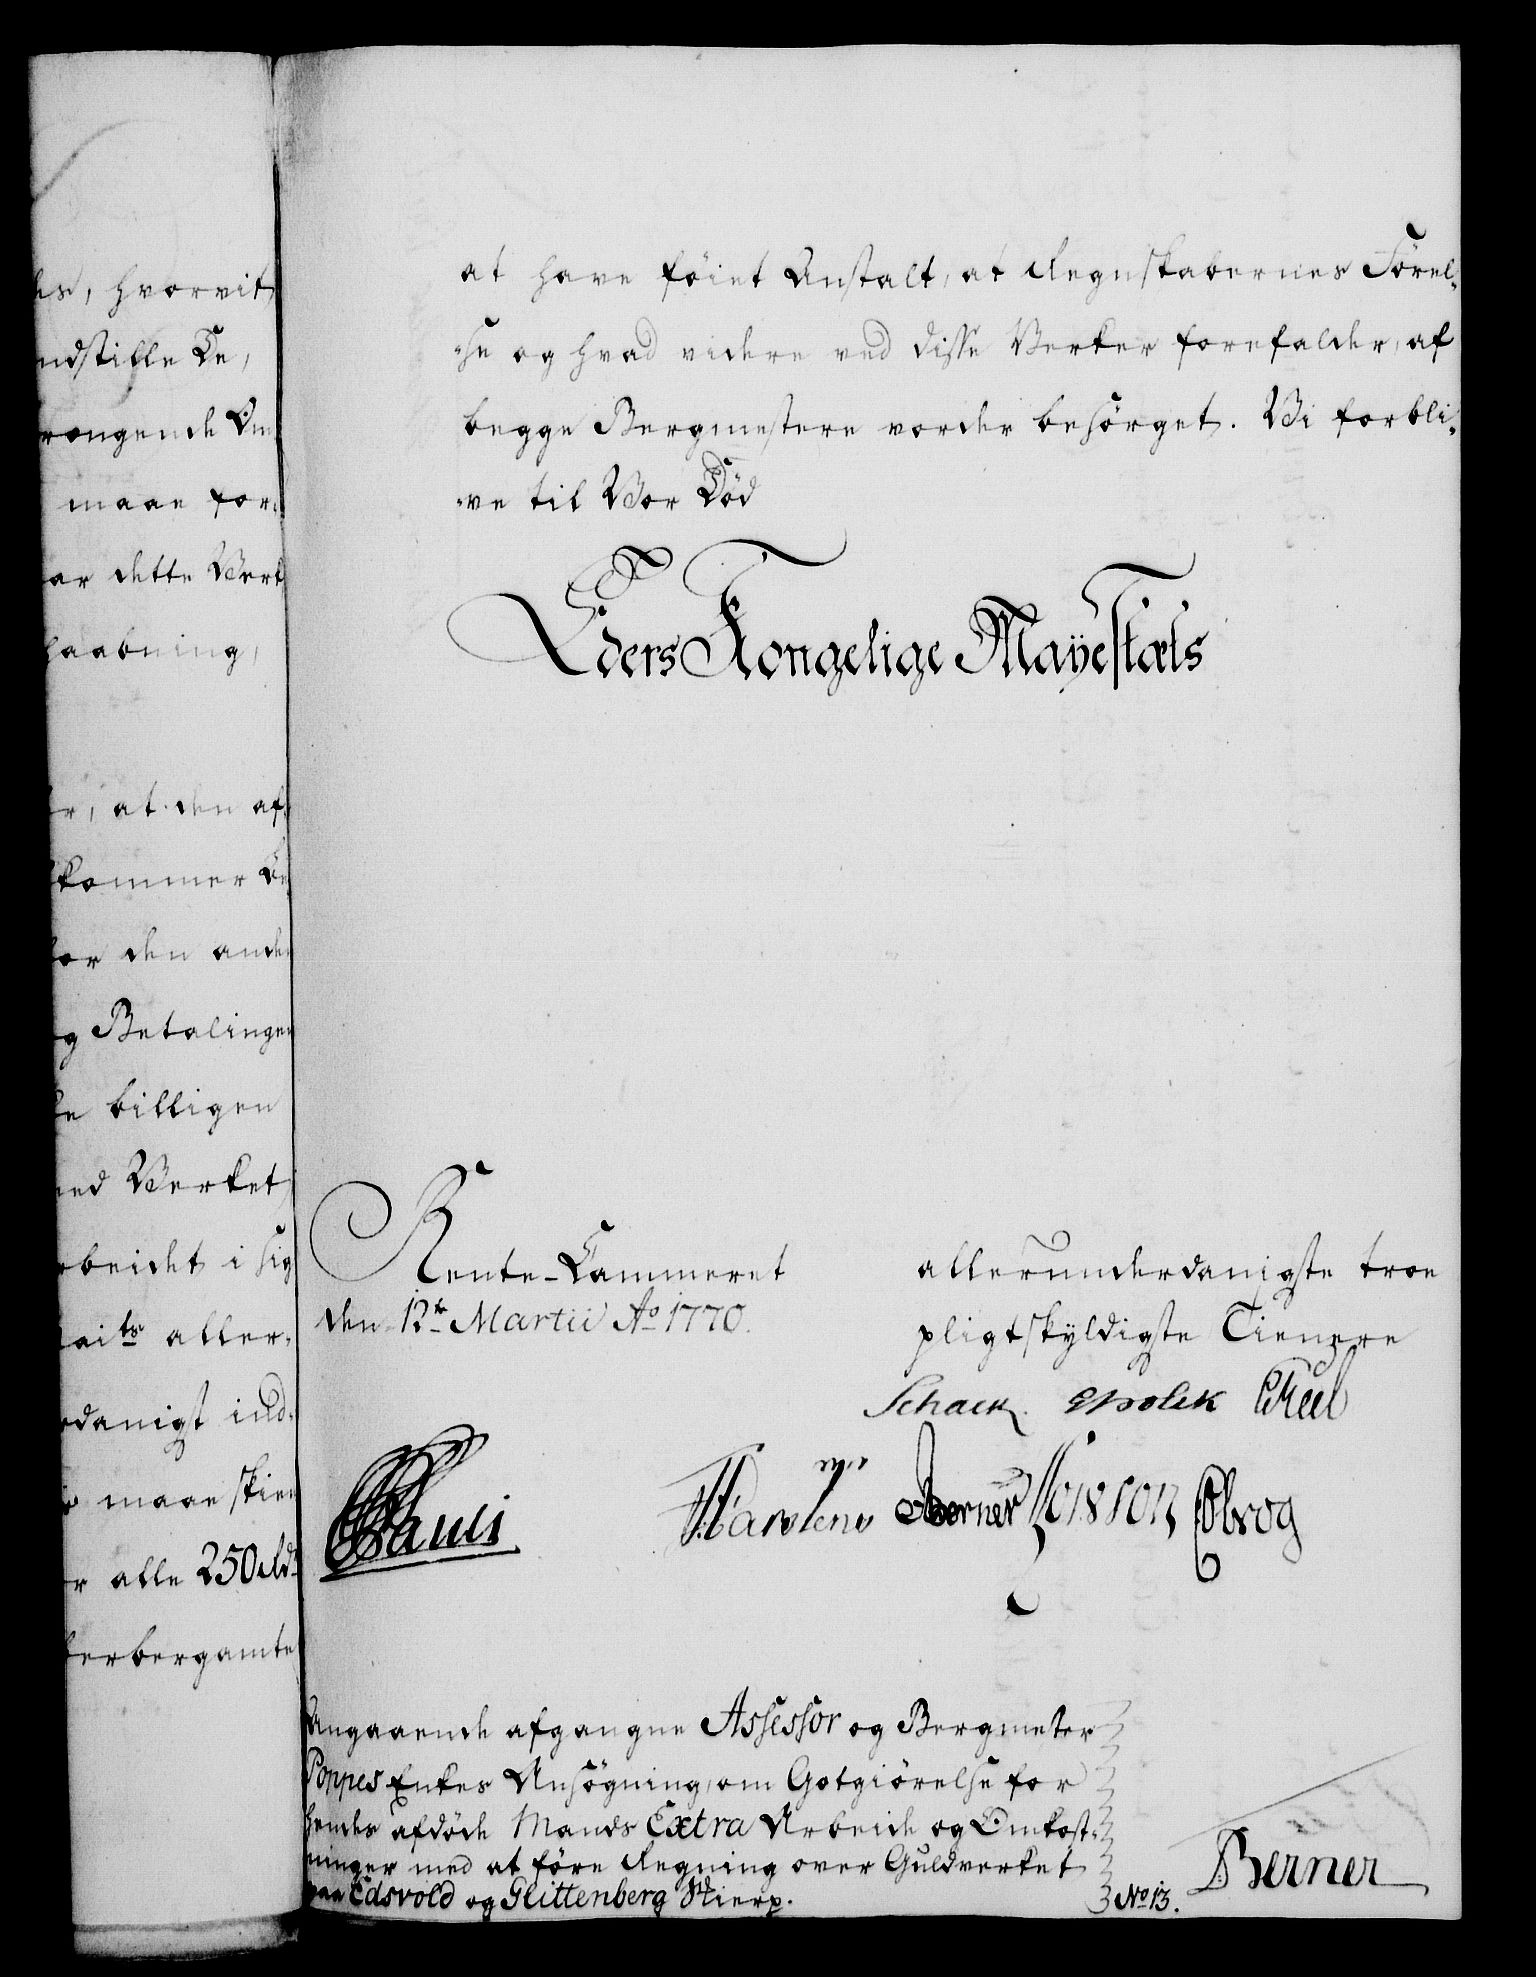 es, hvorvit
ndstille De,
maae for-
ar dette Verk
haabning,
er, at den af-
kommer
for den anden
og Betalingen
billigen
ved Verket
rbeidet i sig
aits aller-
danigst ind-
maae skien
r alle 250 Rd
berbergamte
at have föiet Anstalt, at Regnskabernes Förel-
-se og hvad videre ved disse Verker forefalder, af
begge Bergmestere vorder besörget. Vi forbli-
-ve til Vor Död
Eders Kongelige Mayestæts
Rente-Cammeret
den 12te Martii Ao 1770.
allerunderdanigste troe
pligtskÿldigste Tienere
Schack
Berner
Angaaende afgangne Assessor og Bergmester
Poppes Enkes Ansögning, om Godtgiörelse for
hendes afdöde Mands Extra Arbeide og Omkost-
ninger med at före Regning over Guldverket
paa Edsvold og Glittenberg Skierp.
No 13.
Berner